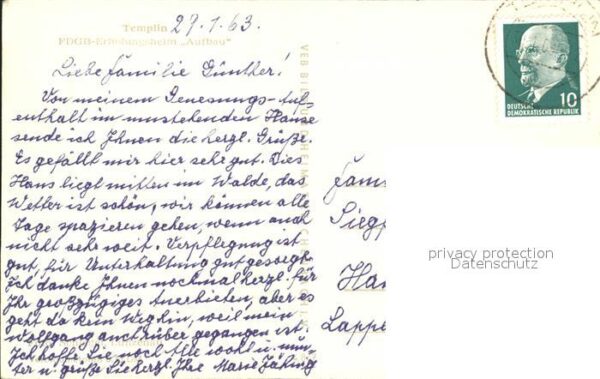 Templin 29.1.63.
FDGB-Erholungsheim „Aufbau“
Liebe Familie Günther!
Von meinem Genesungs-Auf-
enthalt im umstehenden Hause
sende ich Ihnen die herzl. Grüße.
Es gefällt mir hier sehr gut. Dies
Haus liegt mitten im Walde, das
Wetter ist schön, wir können alle
Tage spazieren gehen, wenn auch
nicht sehr weit. Verpflegung ist
gut, für Unterhaltung gut gesorgt.
Ich danke Ihnen nochmal herzl. für
Ihr großzügiges Anerbieten, aber es
geht da kein Weg hin, weil mein
Wolfgang auch rüber gegangen ist.
Ich hoffe Sie noch Alle wohl u. mun-
ter u. grüße Sie herzl. Ihre Marie
VEB BILD
10
DEUTSCHE
DEMOKRATISCHE REPUBLIK
Fam
Sieg
Ha
Lappe
privacy protection
Datenschutz